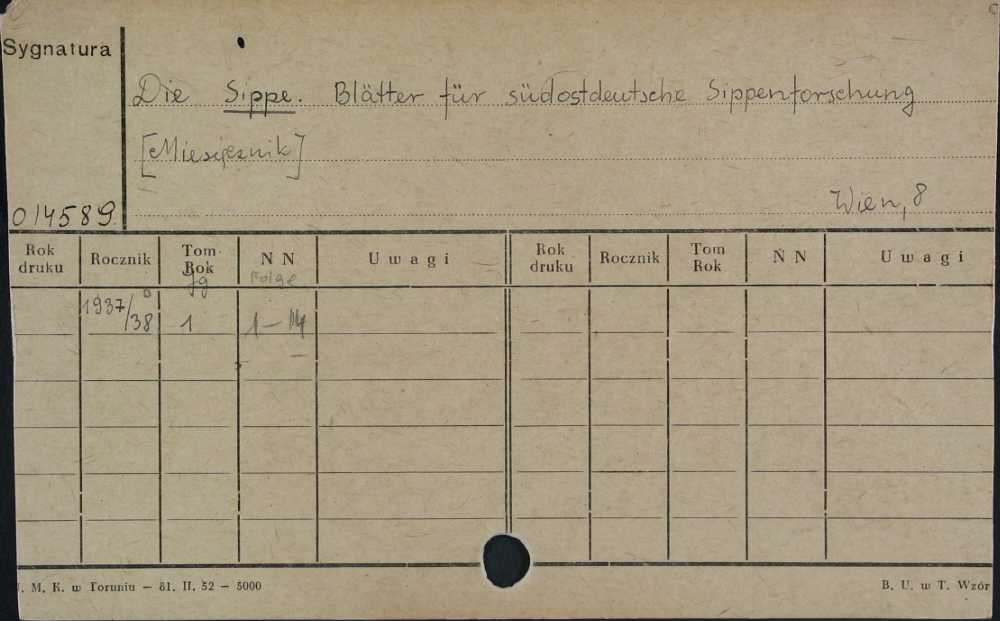 Sygnatura
Die Sippe. Blätter für südostdeutsche Sippenforschung
[Miesięcznik]
Wien, 8
014589
Rok druku Rocznik Tom Rok N N Uwagi Rok druku Rocznik Tom Rok N N Uwagi
Jg Folge
1937/38 1 1-
. M. K. w Toruniu — 81. II. 52 — 5000
B. U. w T. Wzór